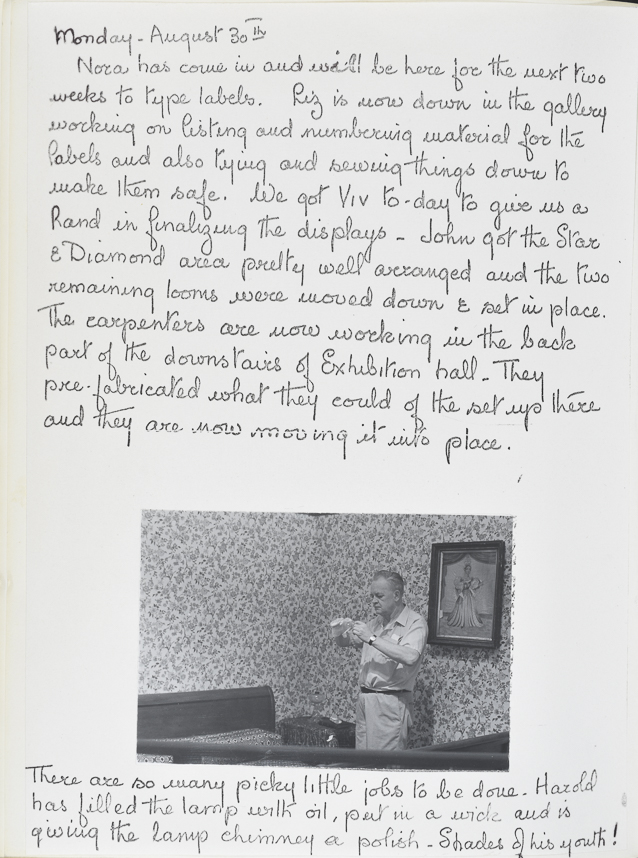 Monday - August 30th
Nora has come in and will be here for the next two
weeks to type labels. Liz is now down in the gallery
working on listing and numbering material for the
labels and also tying and sewing things down to
make them safe. We got Viv to-day to give us a
hand in finalizing the displays - John got the Star
& Diamond area pretty well arranged and the two
remaining looms were moved down & set in place.
The carpenters are now working in the back
part of the downstairs of Exhibition hall - They
pre-fabricated what they could of the set up there
and they are now moving it into place.
There are so many picky little jobs to be done - Harold
has filled the lamp with oil, put in a wick and is
giving the lamp chimney a polish - Shades of his youth!